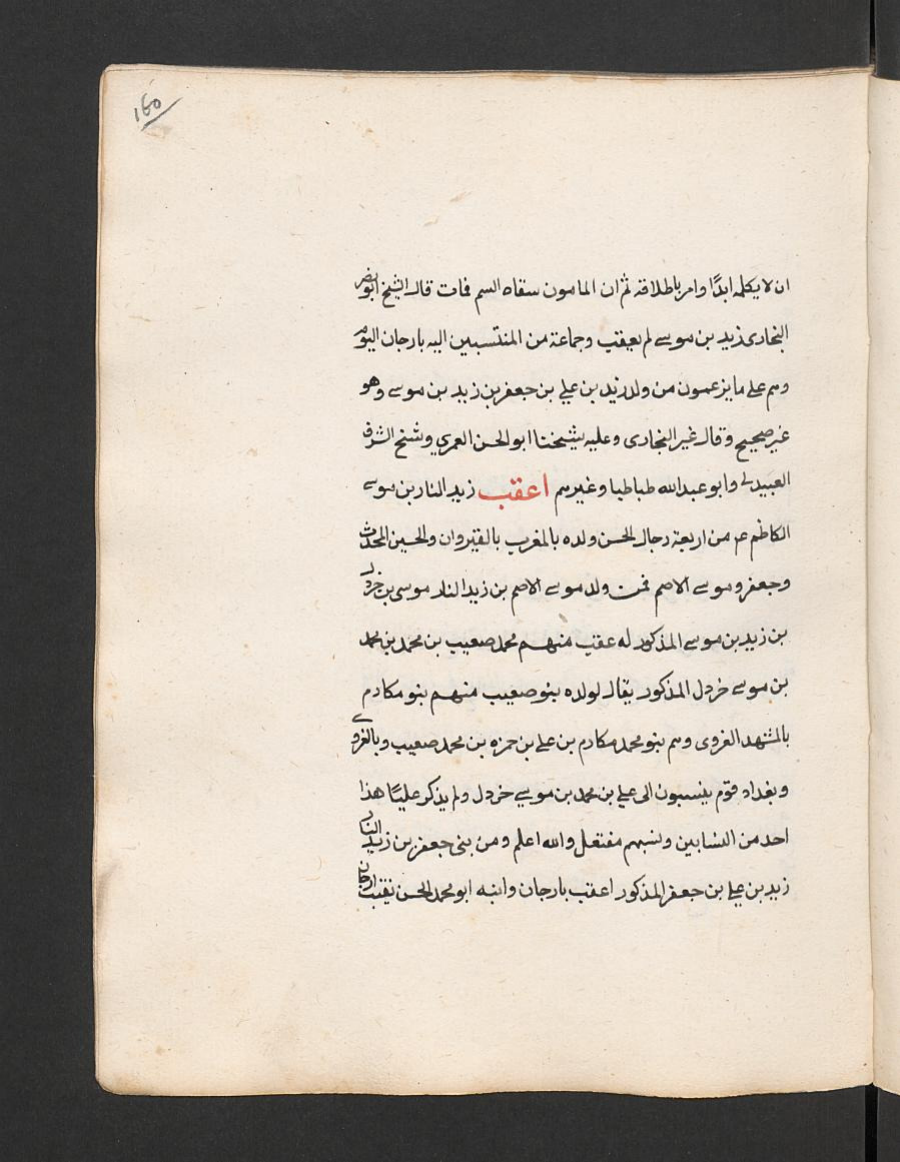 ١٤٥
ان لا يكلمه ابدًا وامر باطلاقه ثم ان المامون سقاه السم فمات قال الشيخ ابو نصر
البخارى زيد بن موسى لم يعقب وجماعة من المنتسبين اليه بارجان اليوم
وهم على ما يزعمون من ولد زيد بن على بن جعفر بن زيد بن موسى وهو
غير صحيح وقال غير البخارى وعليه شيخنا ابو الحسن العمري وشيخ الشرف
العبيدلى وابو عبد الله طباطبا وغيرهم اعقب زيد النار بن موسى
الكاظم عم من اربعة رجال الحسن ولده بالمغرب بالقيروان والحسين المحدث
وجعفر وموسى الاصم فمن ولد موسى الاصم بن زيد النار موسى بن خردل
بن زيد بن موسى المذكور له عقب منهم محمد صعيب بن محمد بن محمد
بن موسى خردل المذكور يقال لولده بنو صعيب منهم بنو مكادم
بالمشهد الغروى وهم بنو محمد مكادم بن على بن حمزه بن محمد صعيب وبالغرى
وبغداد قوم ينسبون الى على بن محمد بن موسى خردل ولم يذكر عليًا هذا
احد من النسابين ونسبهم مفتعل والله اعلم ومن بنى جعفر بن زيد النار
زيد بن على بن جعفر المذكور اعقب بارجان وابنه ابو محمد الحسن نقيب ارجان